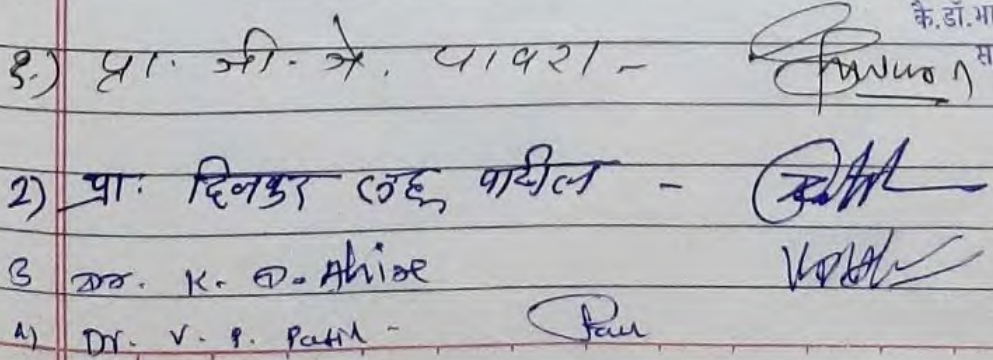 कै.डॉ.भा
स
१.) प्रा. जी. जे. पावरा -
2) प्रा. दिनकर लहू पाटील -
3 Dr. K. D. Ahire
4) Dr. V. P. Patil -